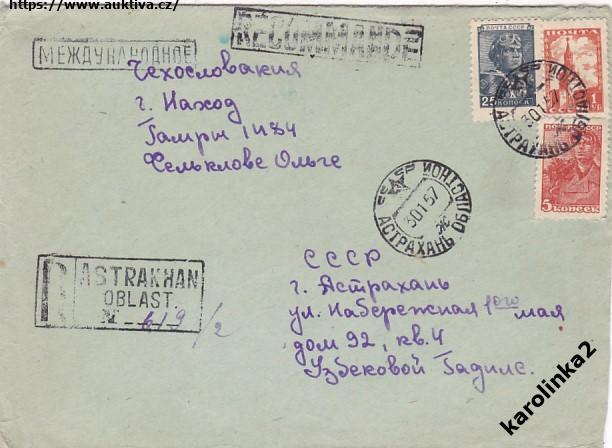 https://www.auktiva.cz/
МЕЖДУНАРОДНОЕ
RECOMMANDE
ПОЧТА СССР
25 КОПЕЕК
ПОЧТА
1
5 КОПЕЕК
Чехословакия
г. Наход
Гамры 1484
Фельклове Ольге
АСТРАХАНЬ
30 1 57
АСТРАХАНЬ ОБЛ
30 1 57
R
ASTRAKHAN
OBLAST.
№ 619/2
СССР
г. Астрахань
ул. Набережная 1ого мая
дом 92, кв. 4
Узбековой
karolinka2